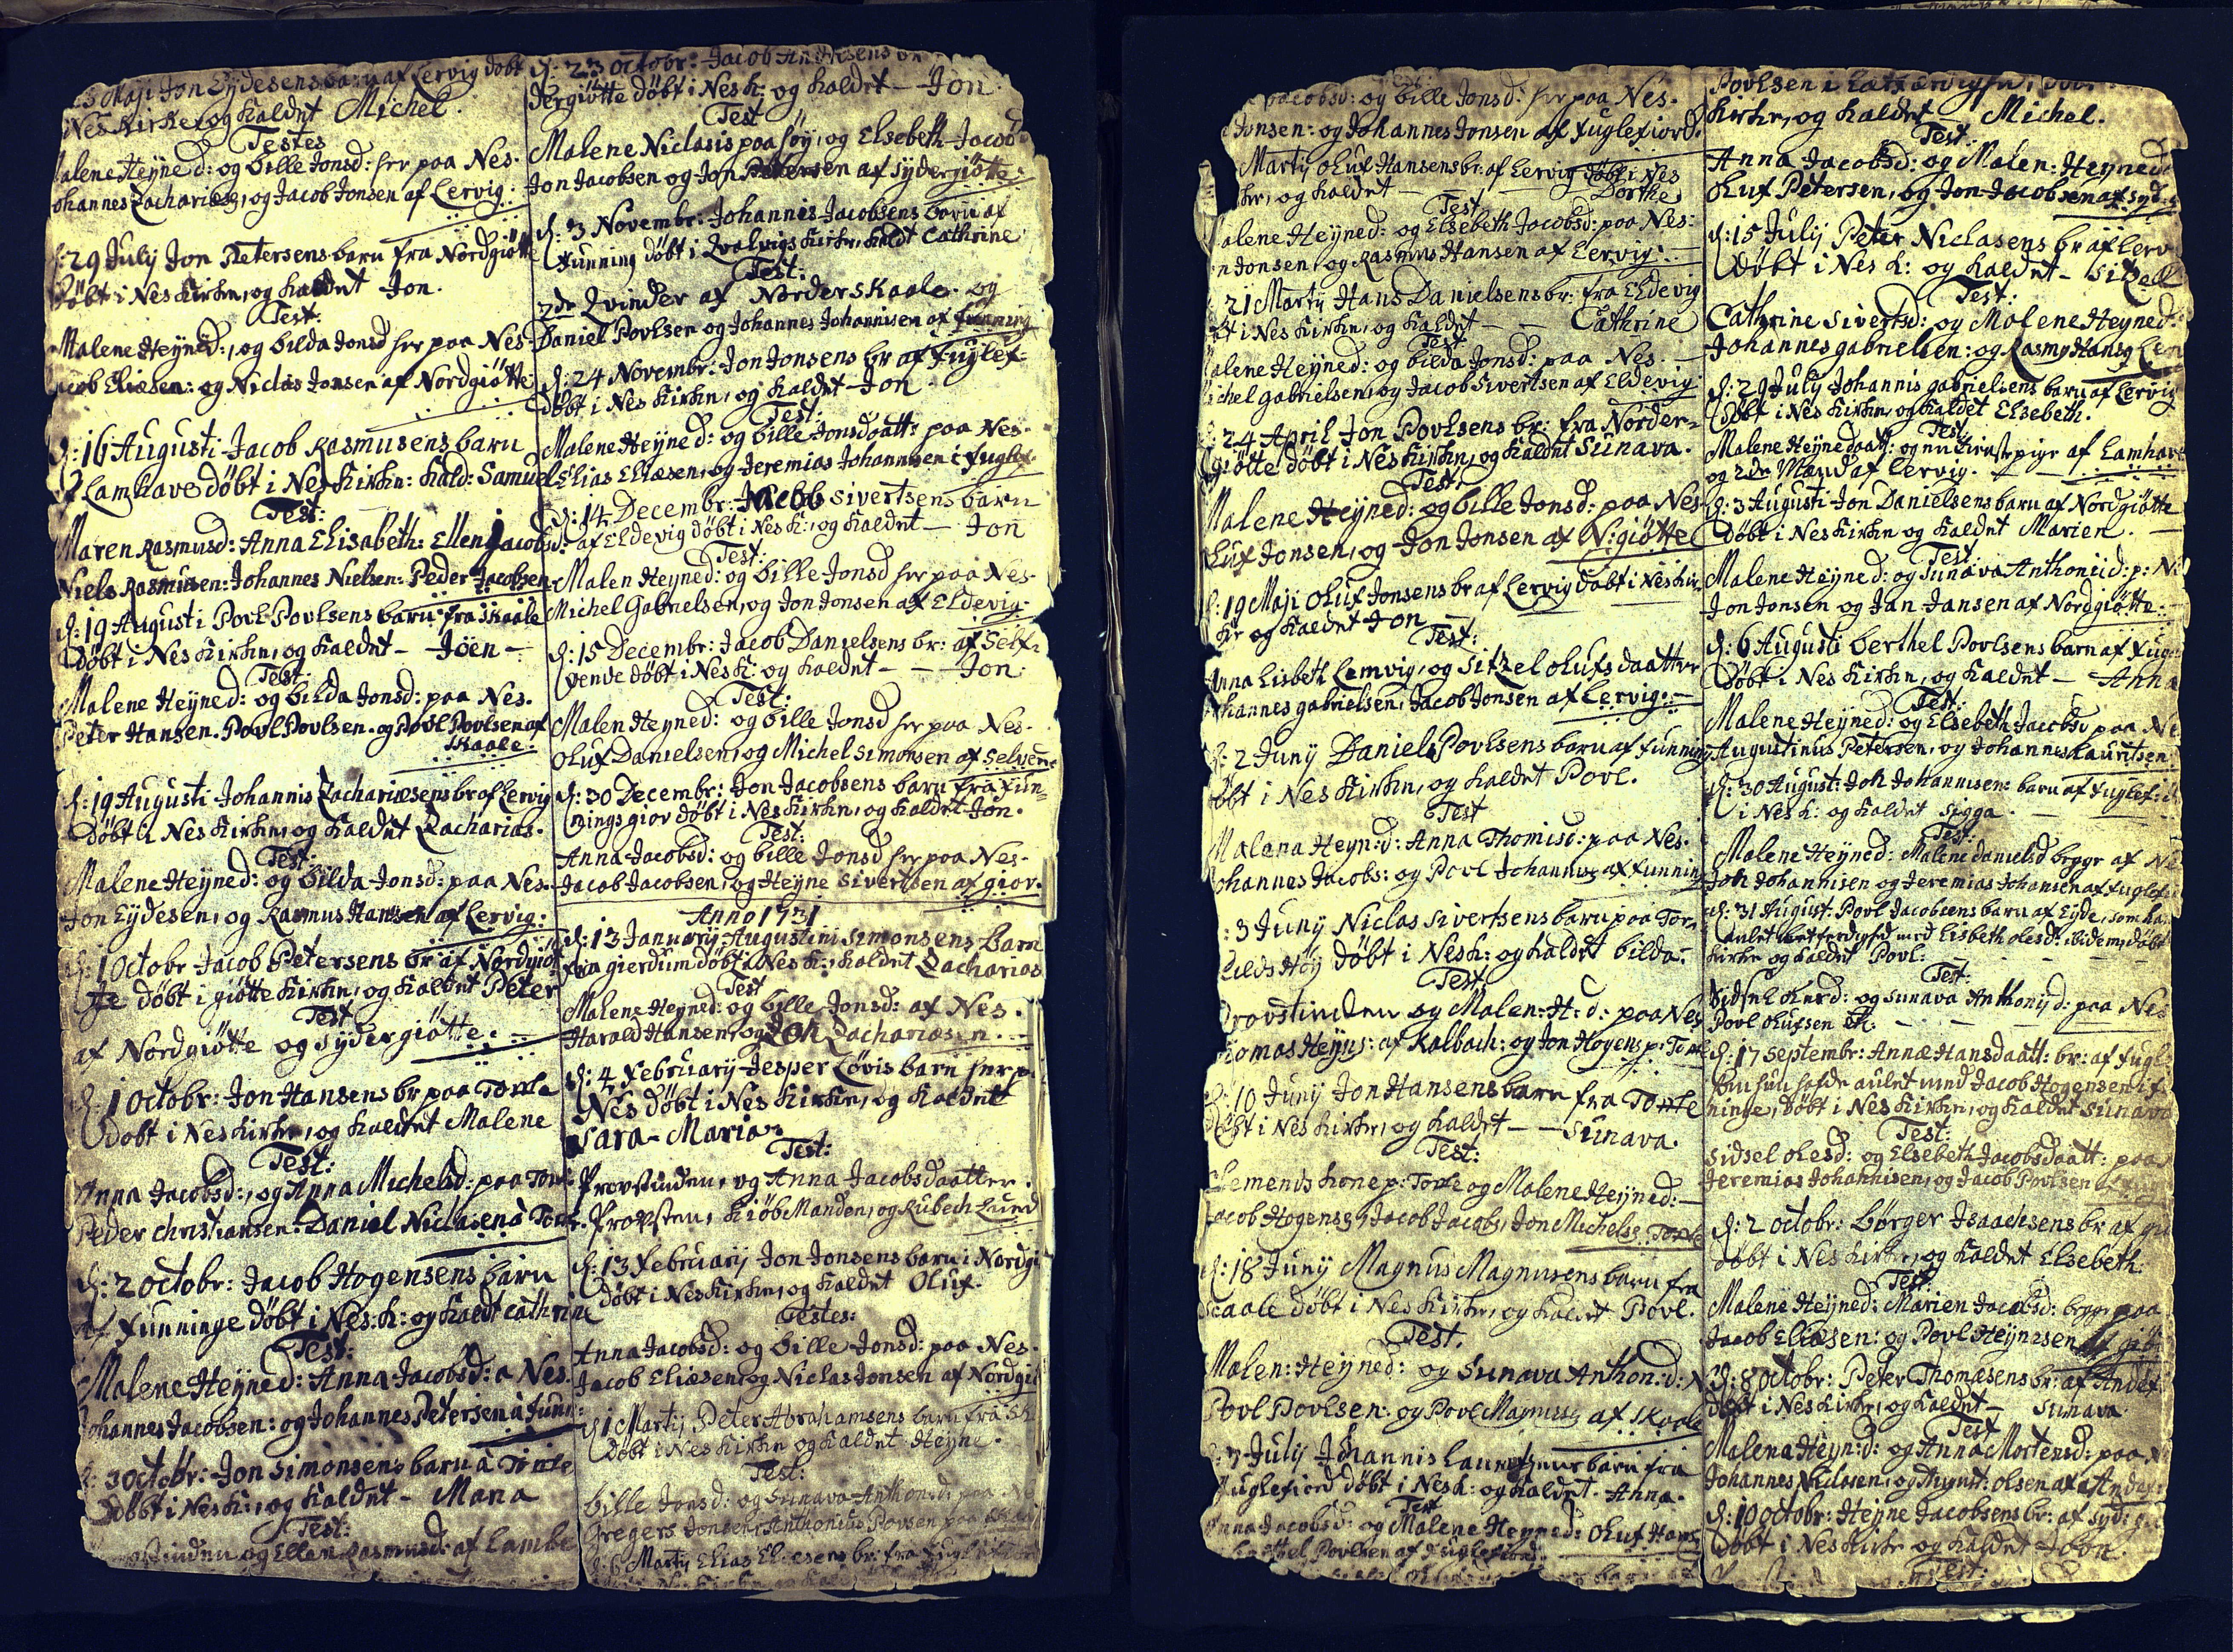 Maji Jon Eydesens barn af Lervig döbt
Nes Kirke, og kaldet Michel.
Testes
Malene Heyned: og bille Jonsd: her paa Nes.
Johannes Zacharies, og Jacob Jonsen af Lervig.
d: 29 July Jon Petersens barn fra Nordgiötte
döbt i Nes Kirke, og kaldet Jon.
Test:
Malene Heyned:, og bilda Jonsd her paa Nes.
Jacob Eliesen: og Niclas Jonsen af Nordgiötte
d: 16 Augusti Jacob Rasmusens barn
af Lamhave döbt i Nes Kirke: kald: Samuel
Test:
Maren Rasmusd: Anna Elisabeth: Ellen Jacobsd:
Niels Rasmusen: Johannes Nielsen: Peder Jacobsen
d: 19 Augusti Povl Povlsens barn fra Skaale
döbt i Nes Kirke, og kaldet – Jöen –
Test:
Malene Heyned: og bilda Jonsd: paa Nes.
Peter Hansen. Povl Povlsen. og Povl Povlsen af
Skaale.
d: 19 Augusti Johannis Zachariæsens br af Lervig
döbt i Nes Kirke, og kaldet Zacharias.
Test:
Malene Heyned: og bilda Jonsd: paa Nes.
Jon Eydesen, og Rasmus Hansen af Lervig:
d: 1 Octobr Jacob Petersens br af Nordgiöt
te döbt i giötte Kirke, og kaldet Peter
Test
af Nordgiötte og Sydergiötte.
d: 1 Octobr: Jon Hansens br paa Torte
döbt i Nes Kirke, og kaldet Malene
Test:
Anna Jacobsd:, og Anna Michelsd: paa Torte
Peder Christiansen. Daniel Niclasen à Torte.
d: 2 octobr: Jacob Hogensens barn
af Funninge döbt i Nes. K: og kaldt Cathrine
Test:
Malene Heyned: Anna Jacobsd: a Nes.
Johannes Jacobsen: og Johannes Petersen à funn:
d: 3 Octobr: Jon Simonsens barn à Torte
döbt i Nes K:, og kaldet – Mana
Test:
og Ellen Rasmusd: af Lambe
d: 23 Octobr: Jacob Andresens br
dergiötte döbt i Nes K: og kaldet – Jon.
Test
Malene Niclasis paa söy, og Elsebeth Jacobsd
Jon Jacobsen og Jon Petersen af Sydergiötte.
d: 3 Novembr: Johannis Jacobsens barn af
Funning döbt i Qvalvigs Kirke, kaldt Cathrine
Test:
2de Qvinder af Norderskaale. og
Daniel Povlsen og Johannes Johannisen af funning
d: 24 Novembr: Jon Jonsens br af Fuglef:
döbt i Nes Kirke, og kaldet – Jon.
Test:
Malene Heyned: og bille Jonsdaatt: paa Nes.
Elias Eliæsen, og Jeremias Johannisen i fuglef.
d: 14 Decembr: Jacobs Sivertsens barn
af Eldevig döbt i Nes K:, og kaldet – Jon
Test:
Malen Heyned: og bille Jonsd her paa Nes.
Michel Gabrielsen, og Jon Jonsen af Eldevig:
d: 15 Decembr: Jacob Danielsens br: af Self:
vende döbt i Nes K: og kaldet – – Jon:
Test:
Malen Heyned: og bille Jonsd her paa Nes.
Oluf Danielsen, og Michel Simonsen af Selven:
d: 30 Decembr: Jon Jacobsens barn fra Fun:
nings gior döbt i Nes Kirke, og kaldet Jon.
Test:
Anna Jacobsd: og bille Jonsd her paa Nes.
Jacob Jacobsen, og Heyne Sivertsen af gior.
Anno 1731
d: 13 January Augustini Simonsens barn
fra gierdum döbt i Nes K:, kaldet Zacharias
Test
Malene Heyned: og bille Jonsd: af Nes.
Harald Hansen, og Jon Zachariæsen.
d: 4 February Jesper Lövis barn her p
Nes döbt i Nes Kirke, og kaldet
Sara-Maria
Test:
Provstinden, og Anna Jacobsdaatter.
Provsten, KiöbManden, og Rubech Lund
d: 13 February Jon Jonsens barn i Nordgi
döbt i Nes Kirke, og kaldet Oluf.
Testes:
Anna Jacobsd: og bille Jonsd: paa Nes.
Jacob Eliesen, og Niclas Jonsen af Nordgi
d: 1 Martij Peter Abrahamsens barn fra Sk
döbt i Nes Kirke og kaldet Heyne.
Test:
bille Jonsd: og Sunava Anthon:d: paa
Gregers Jonsen, Anthonius Povsen paa
d: 6 Martij Elias Eliesens br: fra fuglefiord
Jacobsd: og bille Jonsd: her paa Nes.
Jonsen: og Johannes Jonsen af fuglefiord.
Martij Oluf Hansens br: af Lervig döbt i Nes
ke, og kaldet – – Dorthe
Test
Malene Heyned: og Elsebeth Jacobsd: paa Nes:
n Jonsen, og Rasmus Hansen af Lervig:
21 Martij Hans Danielsens br: fra Eldevig
bt i Nes Kirke, og kaldet – – Cathrine
Test
Malene Heyned: og bilda Jonsd: paa Nes.
Michel Gabrielsen, og Jacob Sivertsen af Eldevig
24 April Jon Povlsens br: fra Norder:
giötte döbt i Nes Kirke, og kaldet Sunava.
Test.
Malene Heyned: og bille Jonsd: paa Nes
Oluf Jonsen, og Jon Jonsen af N:giötte
d: 19 Maji Oluf Jonsens br af Lervig döbt i Nes kir
ke og kaldet Jon
Test:
Anna Lisbeth Lemvig, og Sitzel olufsdaatter
Johannes gabrielsen, Jacob Jonsen af Lervig:
d: 2 Juny Daniel Povlsens barn af funning
döbt i Nes Kirke, og kaldet Povl.
Test
Malena Heyn:d: Anna Thomisd: paa Nes.
Johannes Jacobs: og Povl Johannes af funning
3 Juny Niclas Sivertsens barn paa Tor
kilds Höy döbt i Nes k: og kaldet bilda:
Test.
Provstinden og Malen: H:d: paa Nes
Thomas Heyns: af Kalbach: og Jon Hogens p: Torte
10 Juny Jon Hansens barn fra Torte
döbt i Nes Kirke, og kaldet – – Sunava.
Test:
Clemends kone p: Torte og Malene Heyned:
Jacob Hogens, Jacob Jacobs, Jon Michels: Torte
d: 18 Juny Magnus Magnusens barn fra
Skaale döbt i Nes Kirke, og kaldet Povl.
Test.
Malen: Heyned: og Sunava Anthon:d: N
Povl Povlsen: og Povl Magnuss af Skaale
7 July Johannis barn fra
fuglefiord döbt i Nes k: og kaldet. Anna.
Test
Anna Jacobsd: og Malene Heyned: Oluf Hans
Berthel Povlsen af fuglefiord.
Povlsen i
Kirke, og kaldet – Michel.
Test.
Anna Jacobsd: og Malen: Heyned
Oluf Petersen, og Jon Jacobsen af Syd:g
d: 15 July Peter Niclasens br af Lerv
döbt i Nes k: og kaldet – Sitzell
Test:
Cathrine Sivertsd: og Malene Heyned:
Johannes gabrielsen: og Rasmg Hansg Ler
d: 29 July Johannis gabrielsens barn af Lervig
döbt i Nes Kirke, og kaldet Elsebeth.
Test
Malene Heynedaatt: og en tieneste pige af Lamhave
og 2de Mænd af Lervig.
d: 3 Augusti Jon Danielsens barn af Nordgiötte
döbt i Nes Kirke og kaldet Marien.
Test
Malene Heyned: og Sunava Anthonid: p: N
Jon Jonsen og Jan Jansen af Nordgiötte:
d: 6 Augusti berthel Povlsens barn af Fug
döbt i Nes Kirke, og kaldet – Anna
Test:
Malene Heyned: og Elsebeth Jacobsd paa N
Augustinus Petersen, og Johannes Lauritsen.
d: 30 August: Joh Johannisen: barn af Fuglef: d
i Nes k: og kaldet Sigga
Test:
Malene Heyned: Malene danielsd begge af N
Joh Johannisen og Jeremias Johansen af fuglef:
d: 31 August. Povl Jacobsens barn af Eyde, som ha
avlet med Lisbeth olesd: ibidem, döbt
Kirke og kaldet Povl:
Test:
og Sunava Anthonijd: paa Nes
Povl Olufsen etc.
d: 17 Septembr: Annæ Hansdaatt: br: af fugl
som hun hafde avlet med Jacob Hogensen i f
ninge, döbt i Nes Kirke, og kaldet Sunava
Test:
Sidsel olesd: og Elsebeth Jacobsdaatt: paa
Jeremias Johannisen, og Jacob Povlsen
d: 2 octobr: Börger Isaachsens br af
döbt i Nes Kirke, og kaldet Elsebeth.
Test:
Malene Heyned: Marien Jacobsd: begge paa
Jacob Eliæsen: og Povl Heynesen af
D: 8 Octobr: Peter Thomæsens br: af Andef
döbt i Nes Kirke, og kaldet – Sunava.
Test
Malena Heyn:d: og Anna Mortensd: paa N
Johannes Niclasen, og olsen af Andef:
d: 10 Octobr: Heyne Jacobsens br: af Syd: gi
döbt i Nes Kirke og kaldet Joen.
Test: